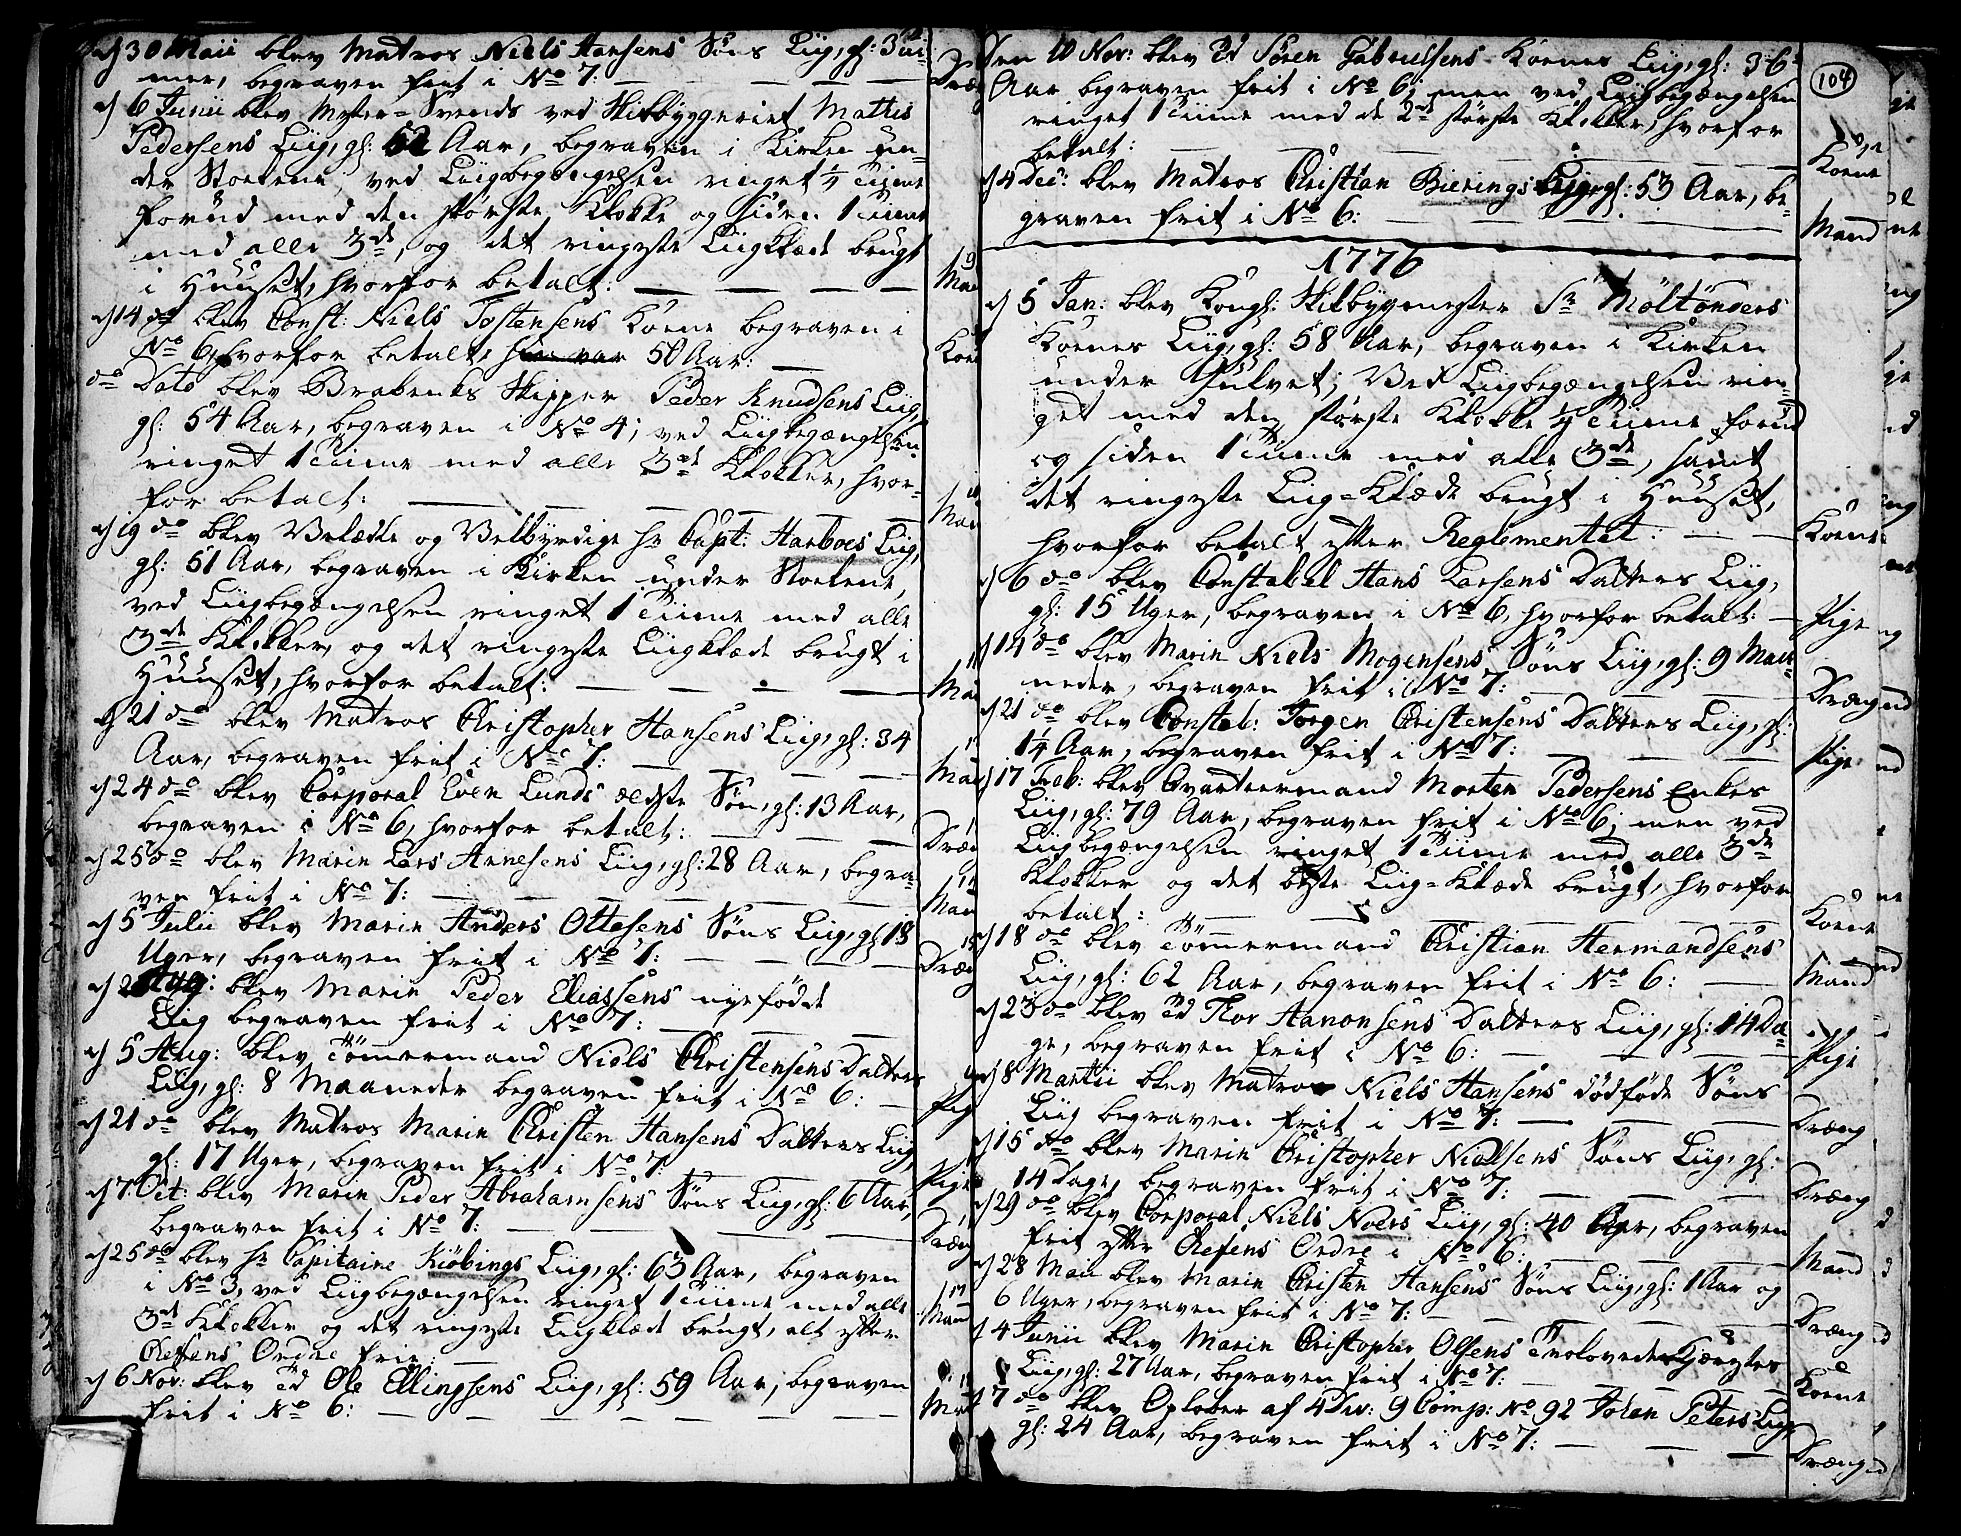 d 30 Maii blev Matros Niels Hansens Søns Liig, gl: 3 Ti-
mer, begraven frit i No 7: — — —
d 6 Junii blev Mester-Svends ved Skibbyggeriet Mattis
Pedersens Liig, gl: 62 Aar, begraven i Kirken un-
der Stolene, ved Liigbegængelsen ringet ½ Tiime
forud med den største Klokke og siden 1 Tiime
med alle 3de, og det ringeste Liigklæde brugt
i Huuset, hvorfor betalt: — — — —
d 14 do blev Const: Niels Tostensens Kone begraven i
No 6, hvorfor betalt, hun var 50 Aar: —
do Dato blev Brabenks Skipper Peder Knudsens Liig,
gl: 54 Aar, begraven i No 4; ved Liigbegængelsen
ringet 1 Tiime med alle 3de Klokker, hvor-
for betalt: — — — —
d 19 do blev Velædle og Velbyrdige Hr Capt: Harboes Liig,
gl: 51 Aar, begraven i Kirken under Stolene,
ved Liigbegængelsen ringet 1 Tiime med alle
3de Klokker, og det ringeste Liigklæde brugt i
Huuset, hvorfor betalt: — — — —
d 21 do blev Matros Christopher Hansens Liig, gl: 34
Aar, begraven frit i No 7: — — —
d 24 do blev Corporal Even Lunds ældste Søn, gl: 13 Aar,
begraven i No 6, hvorfor betalt: — — —
d 25 do blev Marin Lars Arnesens Liig, gl: 28 Aar, begra-
ven frit i No 7: — — — —
d 5 Julii blev Marin Anders Ottosens Søns Liig, gl 13
Uger, begraven frit i No 7: — — —
d 2 Aug: blev Marin Peder Eliassens nyefødt
Liig begraven frit i No 7: — — —
d 5 Aug: blev Tømmermand Niels Christensens Datters
Liig, gl: 8 Maaneder begraven frit i No 6: —
d 21 do blev Matros Marin Christen Hansens Datters Liig,
gl: 17 Uger, begraven frit i No 7: — —
d 7 Oct: blev Marin Peder Abrahamsens Søns Liig, gl: 6 Aar,
begraven frit i No 7: — — —
d 25 do blev Hr Capitaine Kiøbings Liig, gl: 63 Aar, begraven
i No 3, ved Liigbegængelsen ringet 1 Tiime med alle
3de Klokker og det ringeste Liigklæde brugt, alt efter
Chefens Ordre frie: —
d 6 Nov: blev Td Ole Ellingsens Liig, gl: 59 Aar, begraven
frit i No 6: — — — — —
Den 10 Nov: blev Td Søren Gabrielsens Kones Liig, gl: 36
Aar begraven frit i No 6, men ved Liigbegængelsen
ringet 1 Tiime med de 2de største Klokker, hvorfor
betalt: — — — — Kone
d 4 Dec: blev Matros Christian Bierings Liig, gl: 53 Aar, be-
graven frit i No 6: — — — Mand
1776
d 5 Jan: blev Kongl: Skibbygmester Sr Möltöngers
Kones Liig, gl: 58 Aar, begraven i Kirken
under Gulvet; Ved Liigbegængelsen rin-
get med den største Klokke ½ Tiime forud
og siden 1 Tiime med alle 3de, samt
det ringeste Liig-Klæde brugt i Huuset,
hvorfor betalt efter Reglementet: — — Kone
d 6 do blev Constabel Hans Larsens Datters Liig,
gl: 15 Uger, begraven i No 6, hvorfor betalt: — Pige
d 14 do blev Marin Niels Mogensens Søns Liig, gl: 9 Maa-
neder, begraven frit i No 7: — — Dræng
d 21 do blev Constab: Jørgen Christensens Datters Liig, gl:
1¼ Aar, begraven frit i No 7: — — Pige
d 17 Feb: blev Qvarteermand Morten Pedersens Enkes
Liig, gl: 79 Aar, begraven frit i No 6; men ved
Liigbegængelsen ringet 1 Tiime med alle 3de
Klokker og det beste Liig-Klæde brugt, hvorfor
betalt: — — — — Kone
d 18 do blev Tømmermand Christian Hermandsens
Liig, gl: 62 Aar, begraven frit i No 6: — Mand
d 23 do blev Td Thor Aanonsens Datters Liig, gl: 14 Da-
ge, begraven frit i No 6: — — — Pige
d 8 Martii blev Matros Niels Hansens dødføde Søns
Liig begraven frit i No 7: — — Dræng
d 15 do blev Marin Christopher Nielsens Søns Liig, gl:
14 Dage, begraven frit i No 7: — — Dræng
d 29 do blev Corporal Niels Noers Liig, gl: 40 Aar, begraven
frit efter Chefens Ordre i No 6: — — Mand
d 28 Maii blev Marin Christen Hansens Søns Liig, gl: 1 Aar og
6 Uger, begraven frit i No 7: — — — Dræng
d 4 Junii blev Marin Christopher Olsens Trolovede Kjærestes
Liig, gl: 27 Aar, begraven frit i No 7: — — Kone
d 7 do blev Oplober af 4 Div: 9 Comp: No 92 Johan Peters Liig,
gl: 24 Aar, begraven frit i No 7: — — — Dræng
104